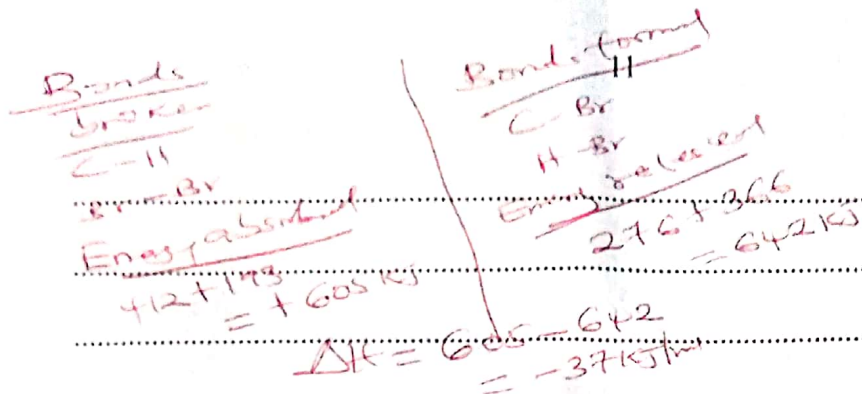 Bonds
broken
C-H
Br-Br
Energy absorbed
412+193
= +605 KJ
Bonds formed
11
C-Br
H-Br
Energy released
276+366
= 642 KJ
ΔH = 605-642
= -37 KJ/ml